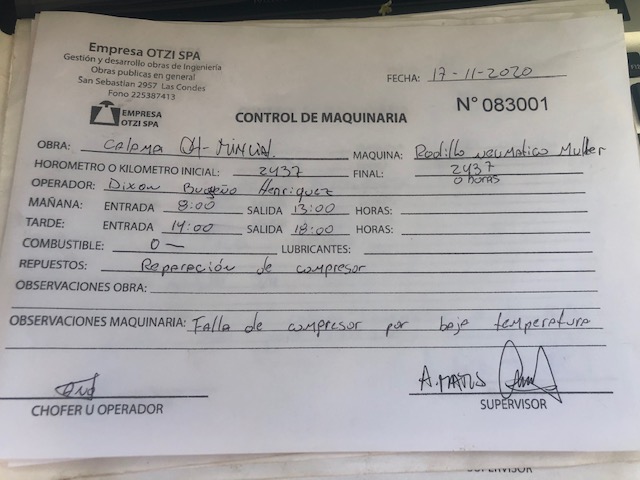 Empresa OTZI SPA
Gestión y desarrollo obras de Ingeniería
Obras publicas en general
San Sebastian 2957 Las Condes
Fono 225387413
FECHA: 17-11-2020
EMPRESA
OTZI SPA
CONTROL DE MAQUINARIA
N° 083001
OBRA: Calama
MAQUINA: Rodillo neumatico Muller
HOROMETRO O KILOMETRO INICIAL: 2437 FINAL: 2437
0 horas
OPERADOR: Dixon Henriquez
MAÑANA: ENTRADA 8:00 SALIDA 13:00 HORAS:
TARDE: ENTRADA 14:00 SALIDA 18:00 HORAS:
COMBUSTIBLE: 0 — LUBRICANTES:
REPUESTOS: Reparación de compresor
OBSERVACIONES OBRA:
OBSERVACIONES MAQUINARIA: Falla de compresor por baja temperatura
A. MATUS
CHOFER U OPERADOR
SUPERVISOR
SUPERVISOR